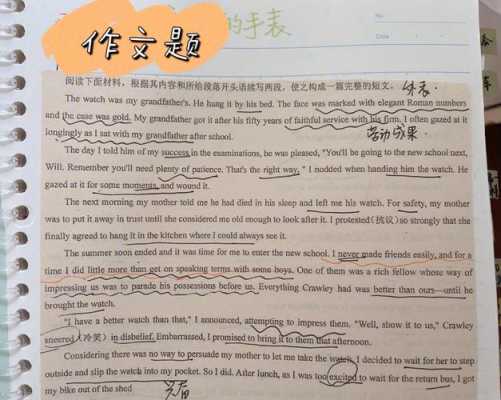 作文题
的手表
No.
Date
阅读下面材料，根据其内容和所给段落开头语续写两段，使之构成一篇完整的短文。
外表.
The watch was my grandfather's. He hung it by his bed. The face was marked with elegant Roman numbers
and the case was gold. My grandfather got it after his fifty years of faithful service with his firm. I often gazed at it
longingly as I sat with my grandfather after school.
劳动成果.
The day I told him of my success in the examinations, he was pleased, "You'll be going to the new school next,
Will. Remember you'll need plenty of patience. That's the right way, " I nodded when handing him the watch. He
gazed at it for some moments, and wound it.
The next morning my mother told me he had died in his sleep and left me his watch. For safety, my mother
was to put it away in trust until she considered me old enough to look after it. I protested (抗议) so strongly that she
finally agreed to hang it in the kitchen where I could always see it.
The summer soon ended and it was time for me to enter the new school. I never made friends easily, and for a
time I did little more than get on speaking terms with some boys. One of them was a rich fellow whose way of
impressing us was to parade his possessions before us. Everything Crawley had was better than ours—until he
brought the watch.
"I have a better watch than that," I announced, attempting to impress them. "Well, show it to us," Crawley
sneered (冷笑) in disbelief. Embarrassed, I promised to bring it to them that afternoon.
Considering there was no way to persuade my mother to let me take the watch, I decided to wait for her to step
outside and slip the watch into my pocket. So I did. After lunch, as I was too excited to wait for the return bus, I got
my bike out of the shed
兴奋